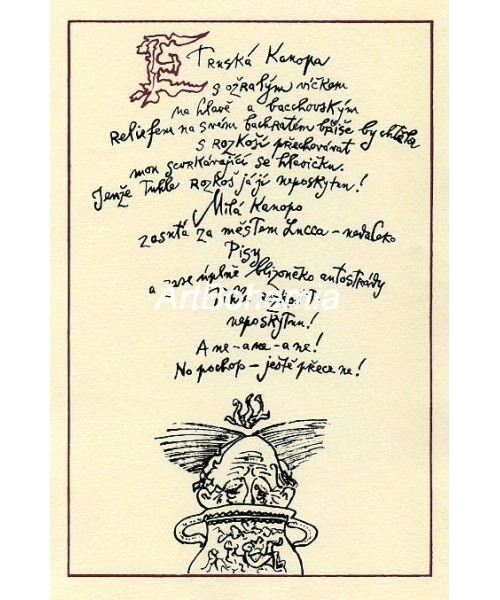 Etruská Kanopa
s ožralým víčkem
na hlavě a bacchovským
Reliefem na svém bachratém břiše by chtěla
s rozkoší přechovávat
mou scvrkávající se hlavičku.
Jenže tuhle rozkoš já jí neposkytnu!
Milá Kanopo
zasutá za městem Lucca – nedaleko
Pisy
a zase úplně blízoučko autostrády
ArtBohemia
neposkytnu!
A ne – a ne – a ne!
No pochop – ještě přece ne!